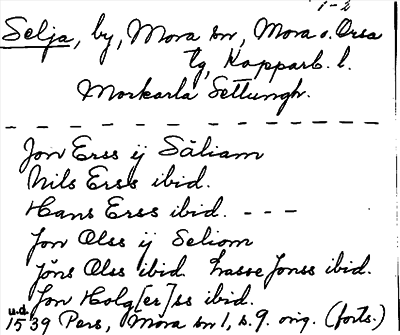 1-2
Selja, by, Mora sn, Mora o. Orsa
tg, Kopparb. l.
Morkarla Settungh.
Jon Erss ij Säliam
Nils Erss ibid.
Hans Erss ibid. - - -
Jon Olss ij Seliom
Jöns Olss ibid. Lasse Jonss ibid.
Jon Holg[er]ss ibid.
u.d.
1539 Pers, Mora sn 1, s. 9. orig. (forts.)